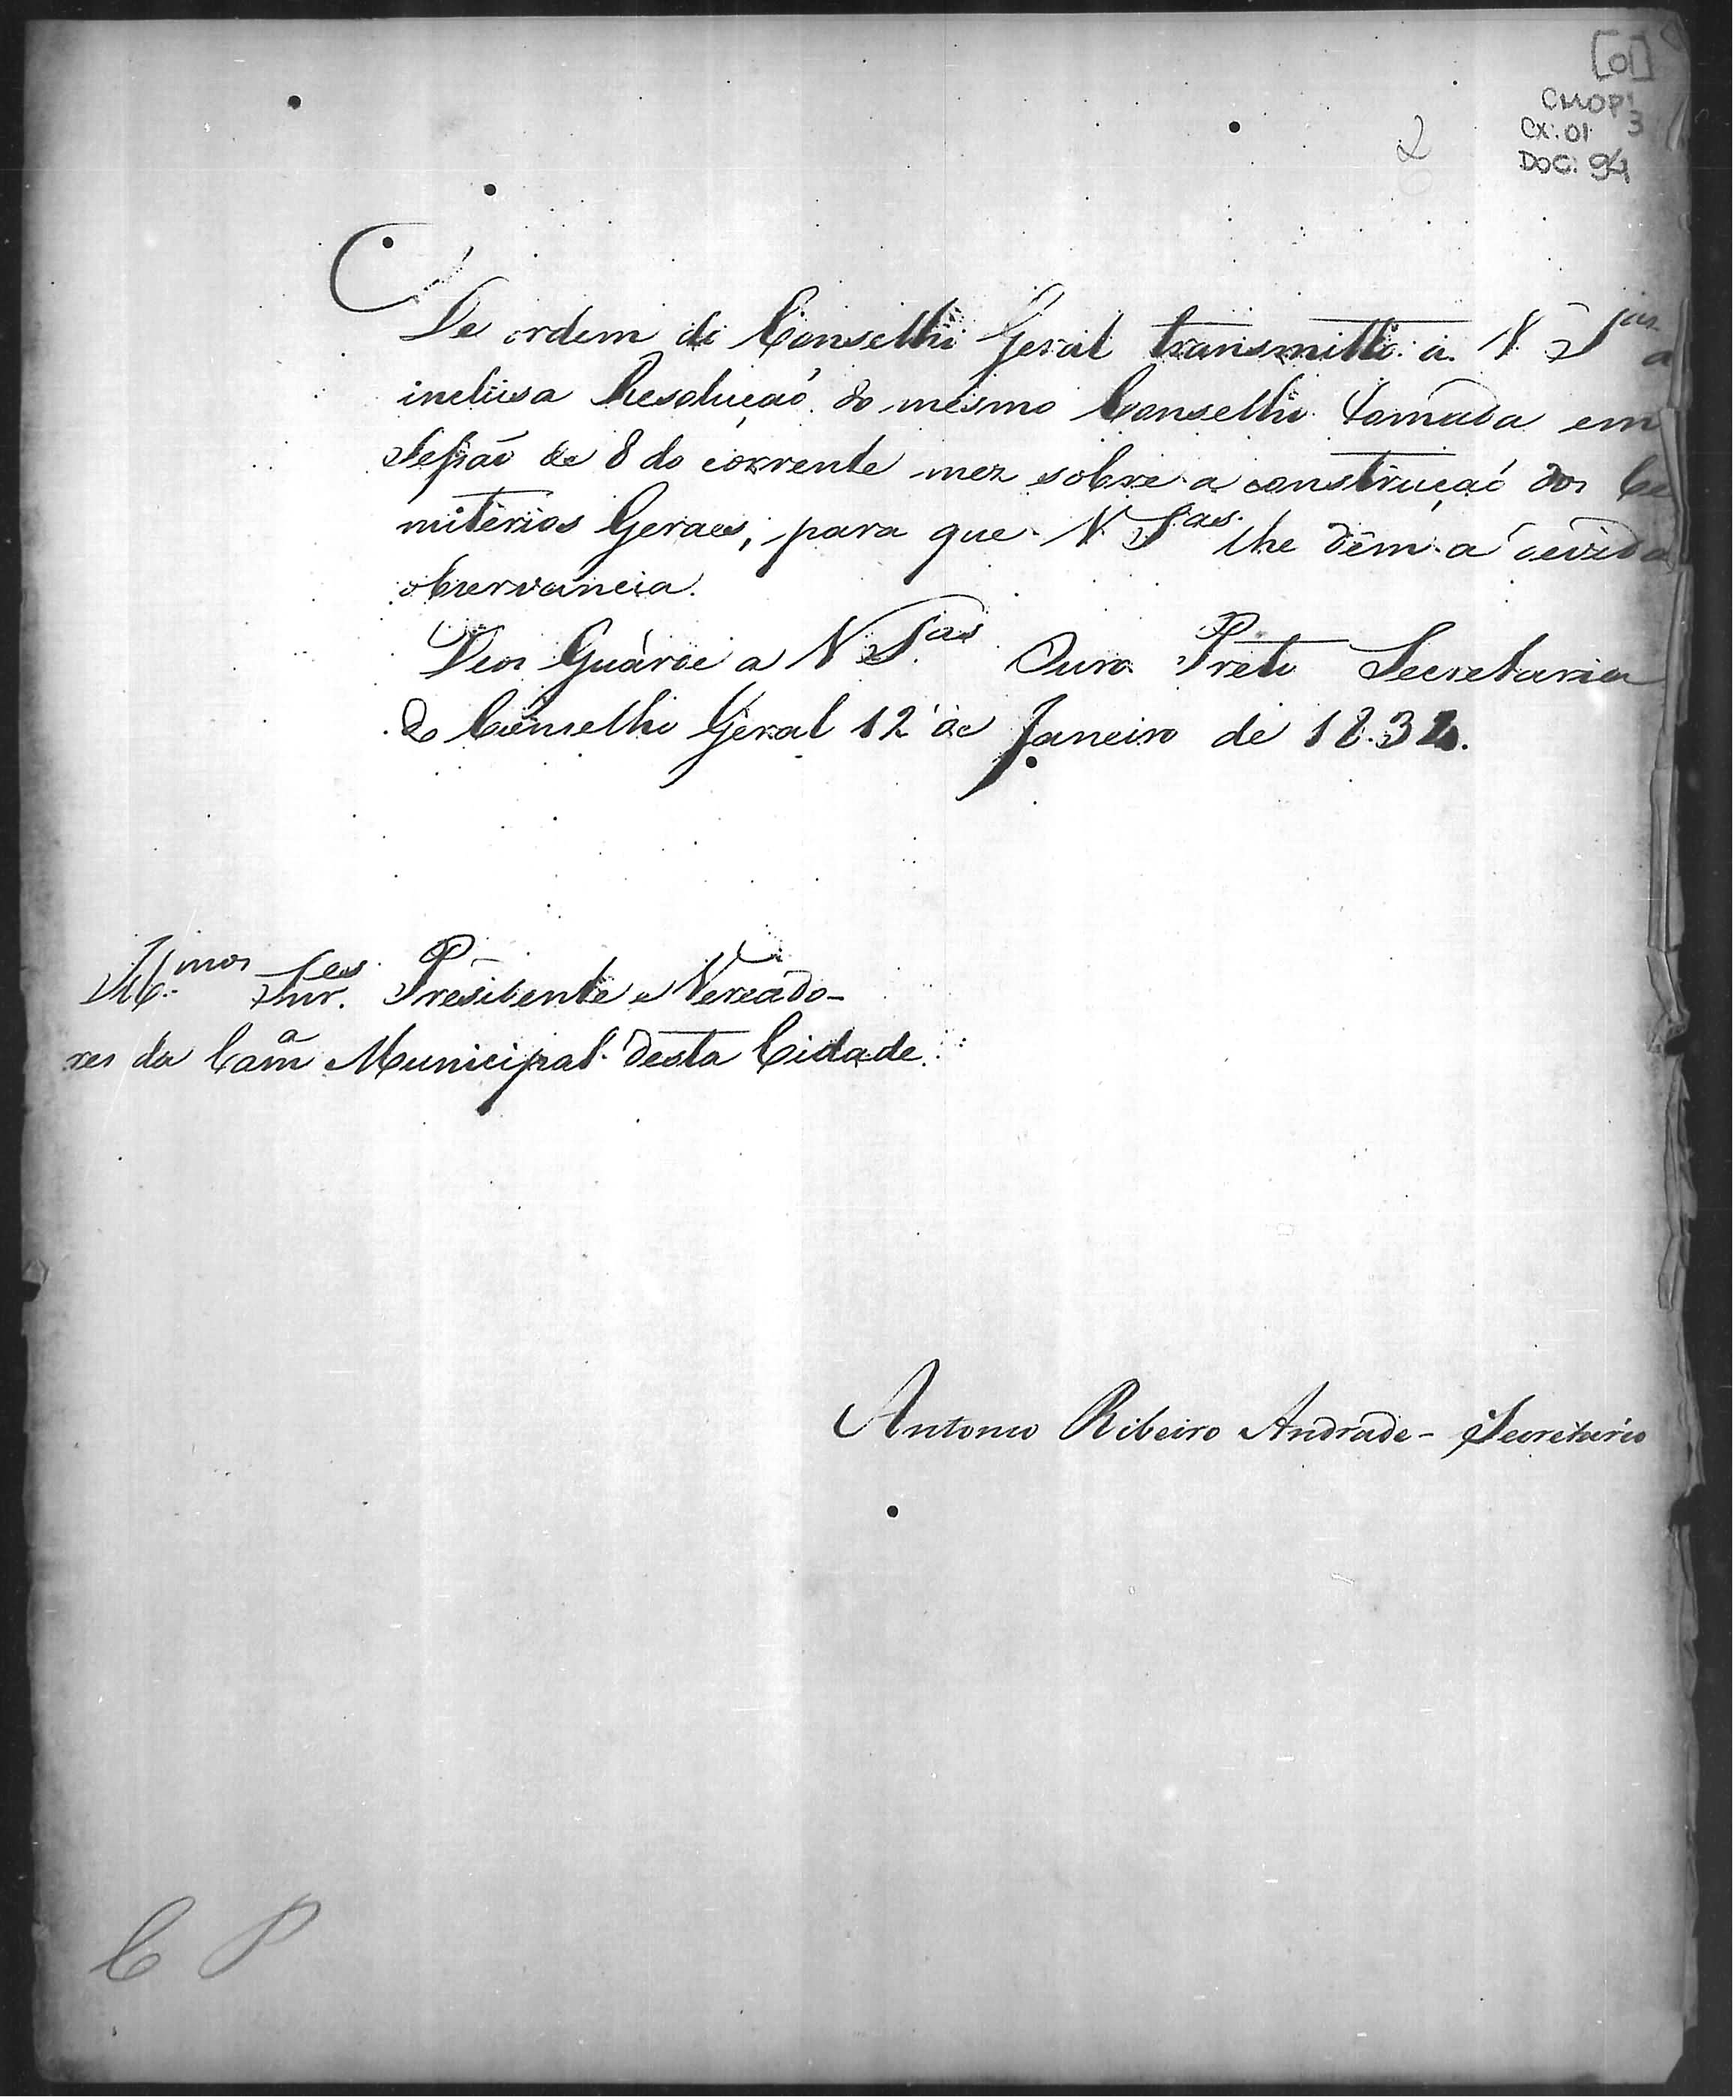 [01]
CMOP
Cx: 01 3
DOC: 94
2
De ordem do Conselho Geral transmitto a V Sas a
incluza Resolução do mesmo Conselho tomada em
Sessão de 8 do corrente mez sobre a construcção dos Ce
miterios Geraes, para que V Sas lhe dêm a devida
observancia.
Deos Guarde a V Sas Ouro Preto Secretaria
do Conselho Geral 12 de Janeiro de 1832.
Illmos Snres Presidente e Vereado-
res da Camª Municipal desta Cidade.
Antonio Ribeiro Andrade - Secretario
C P